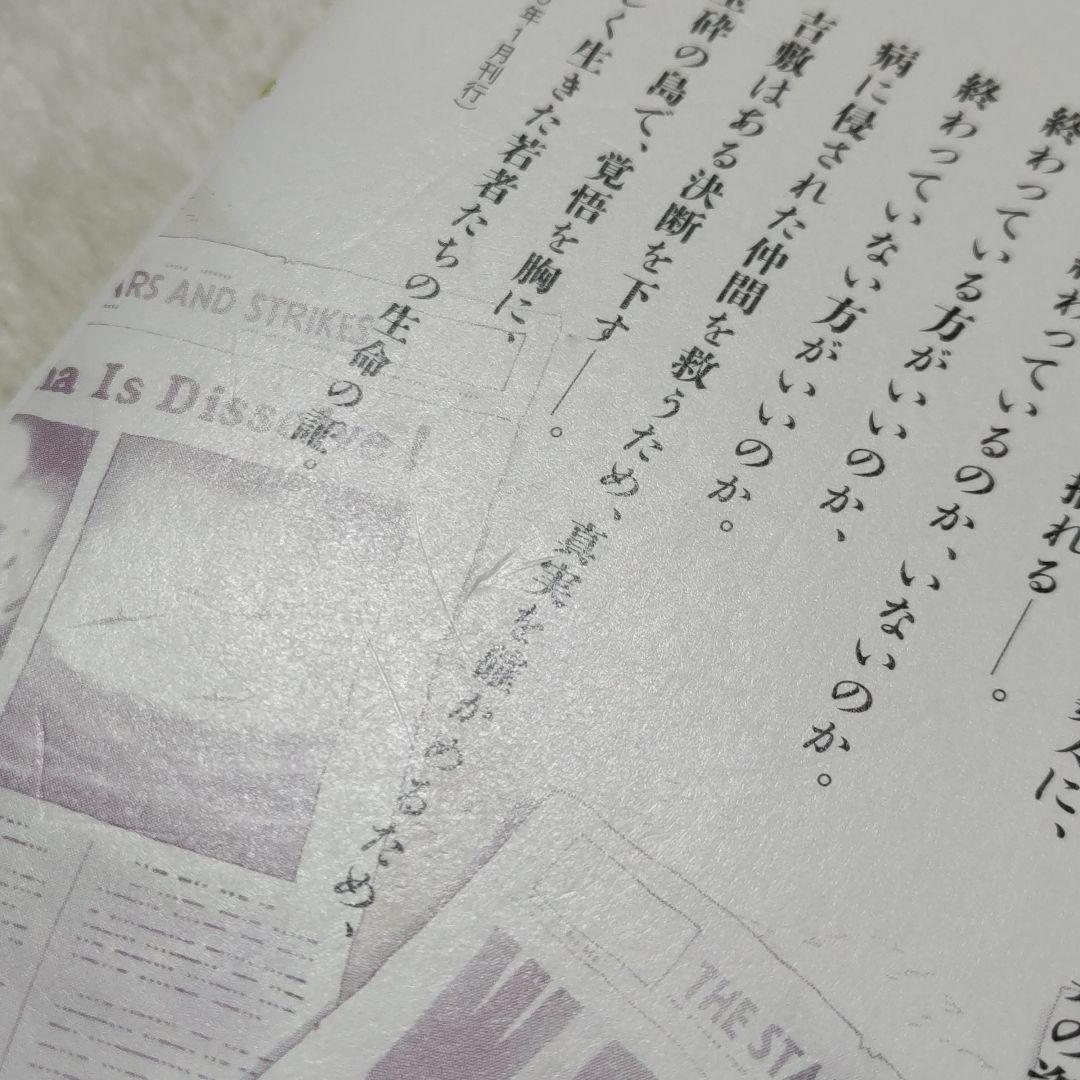 わっているのか、いないのか。
揺れる――。
終わっている方がいいのか、
終わっていない方がいいのか。
病に侵された仲間を救うため、真実を確かめるため、
吉敷はある決断を下す――。
玉砕の島で、覚悟を胸に、
く生きた若者たちの生命の証。
年1月刊行）
ARS AND STRIKES
na Is Diss
THE STA